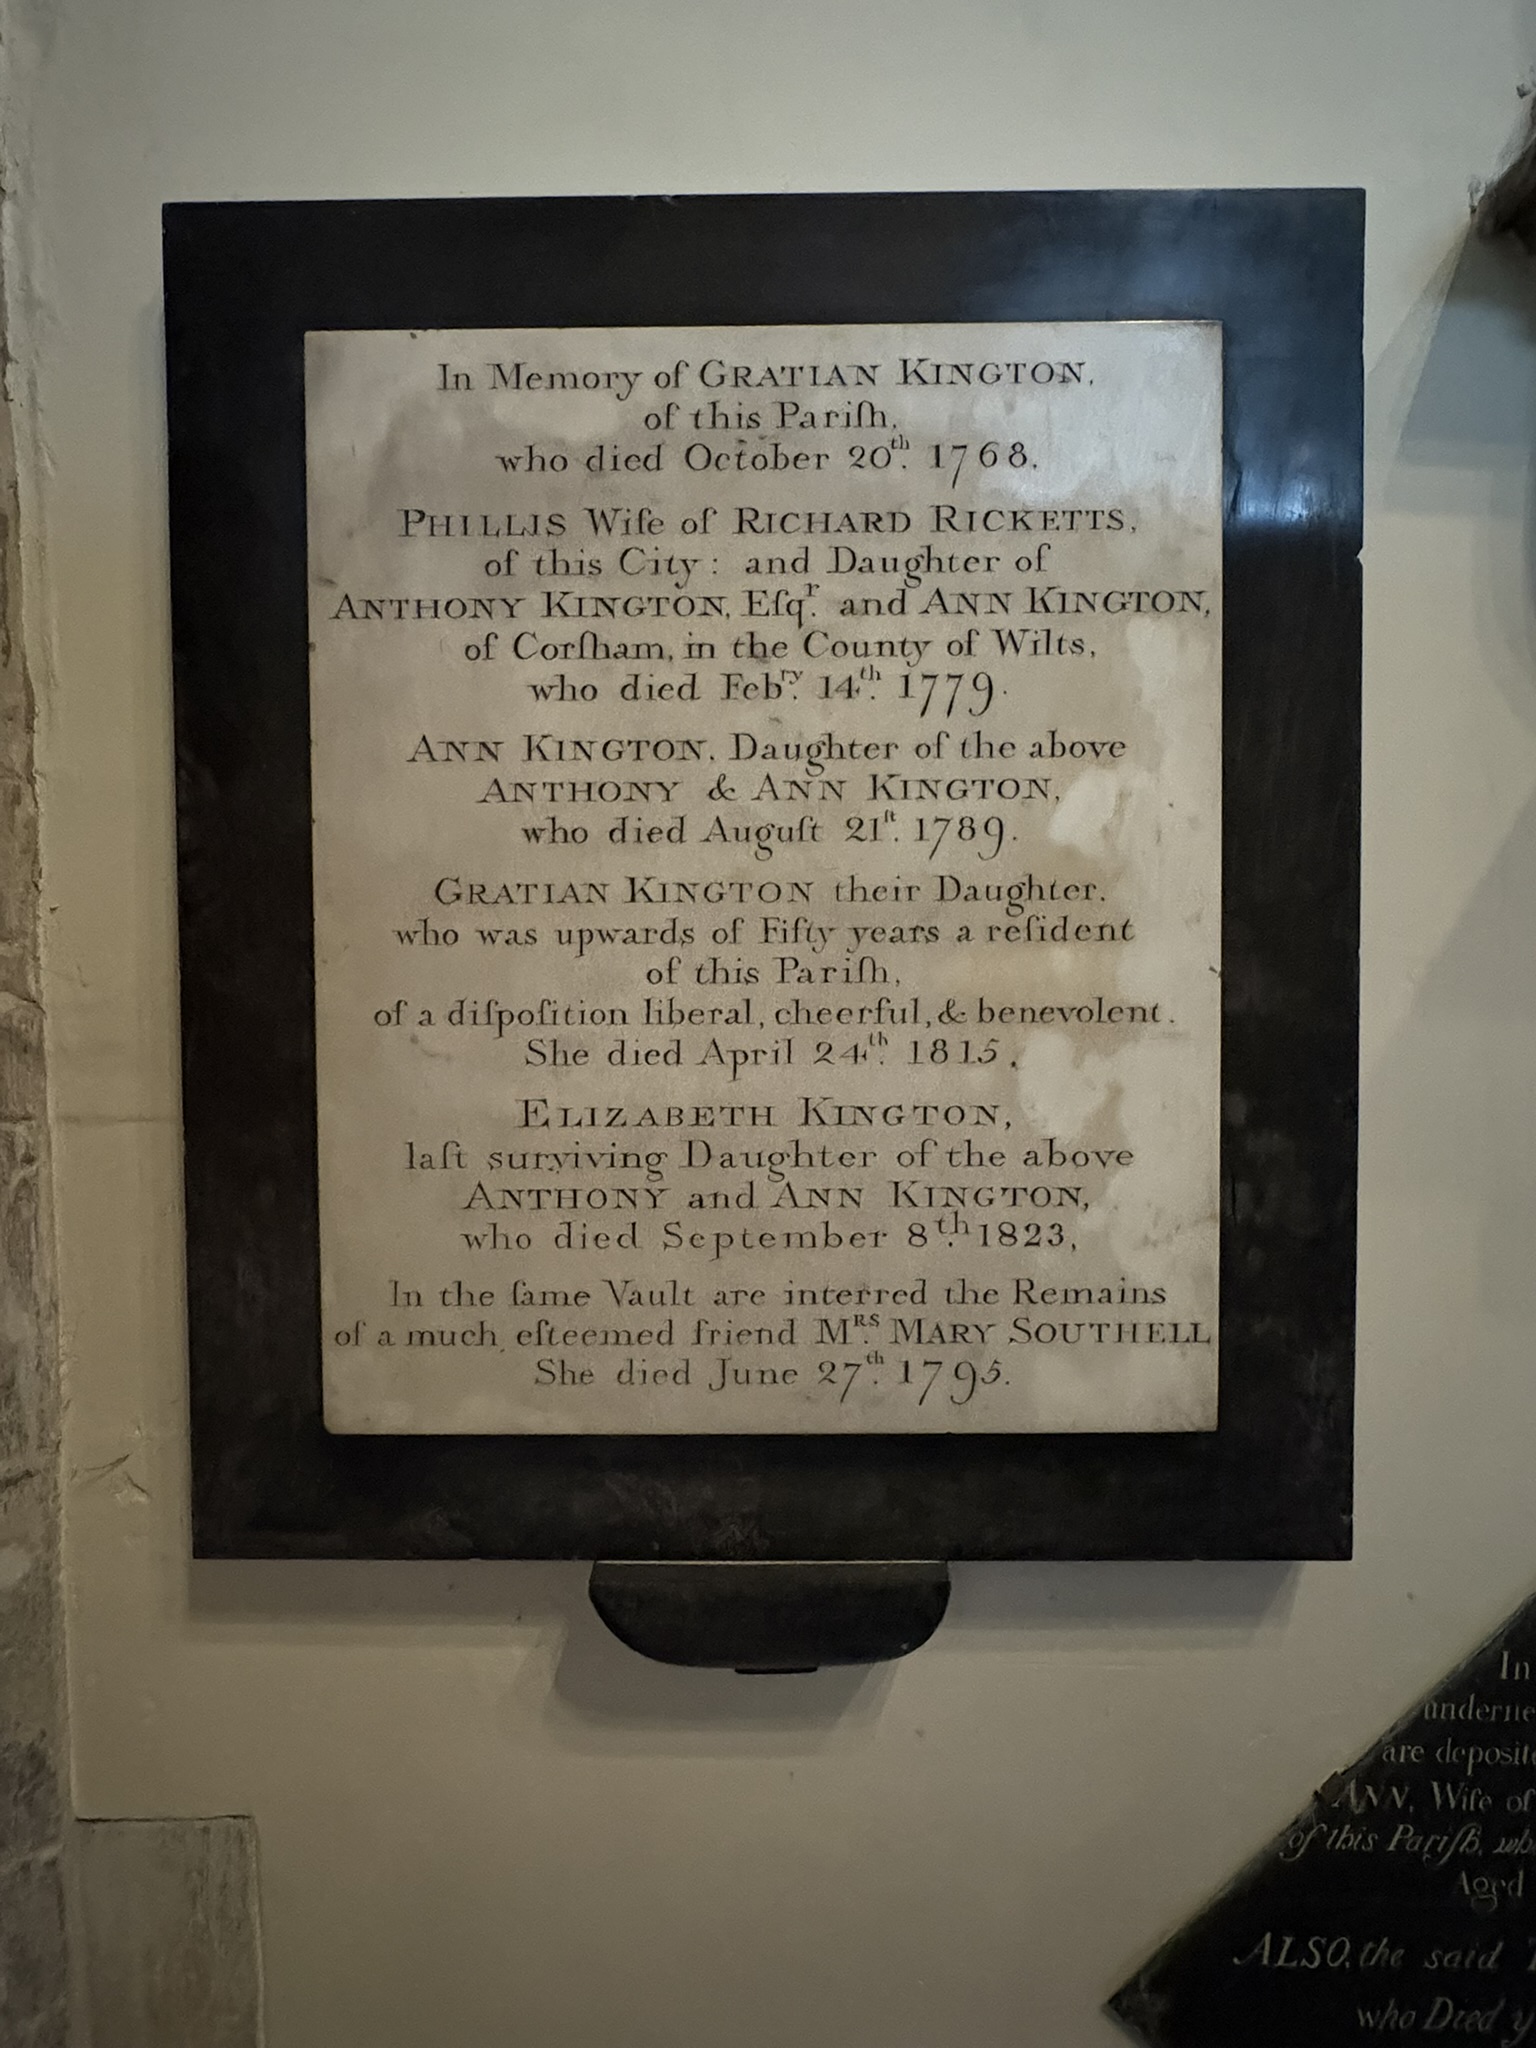 In Memory of GRATIAN KINGTON,
of this Pariſh,
who died October 20th. 1768.
PHILLIS Wife of RICHARD RICKETTS,
of this City: and Daughter of
ANTHONY KINGTON, Eſqr. and ANN KINGTON,
of Corſham, in the County of Wilts,
who died Febry. 14th. 1779.
ANN KINGTON, Daughter of the above
ANTHONY & ANN KINGTON,
who died Auguſt 21ſt. 1789.
GRATIAN KINGTON their Daughter,
who was upwards of Fifty years a reſident
of this Pariſh,
of a diſpoſition liberal, cheerful, & benevolent.
She died April 24th. 1815,
ELIZABETH KINGTON,
laſt surviving Daughter of the above
ANTHONY and ANN KINGTON,
who died September 8th. 1823,
In the ſame Vault are interred the Remains
of a much eſteemed friend MRS. MARY SOUTHELL
She died June 27th. 1795.
In
are
ANN, Wife of
of this Pariſh,
Aged
ALSO, the said
who Died